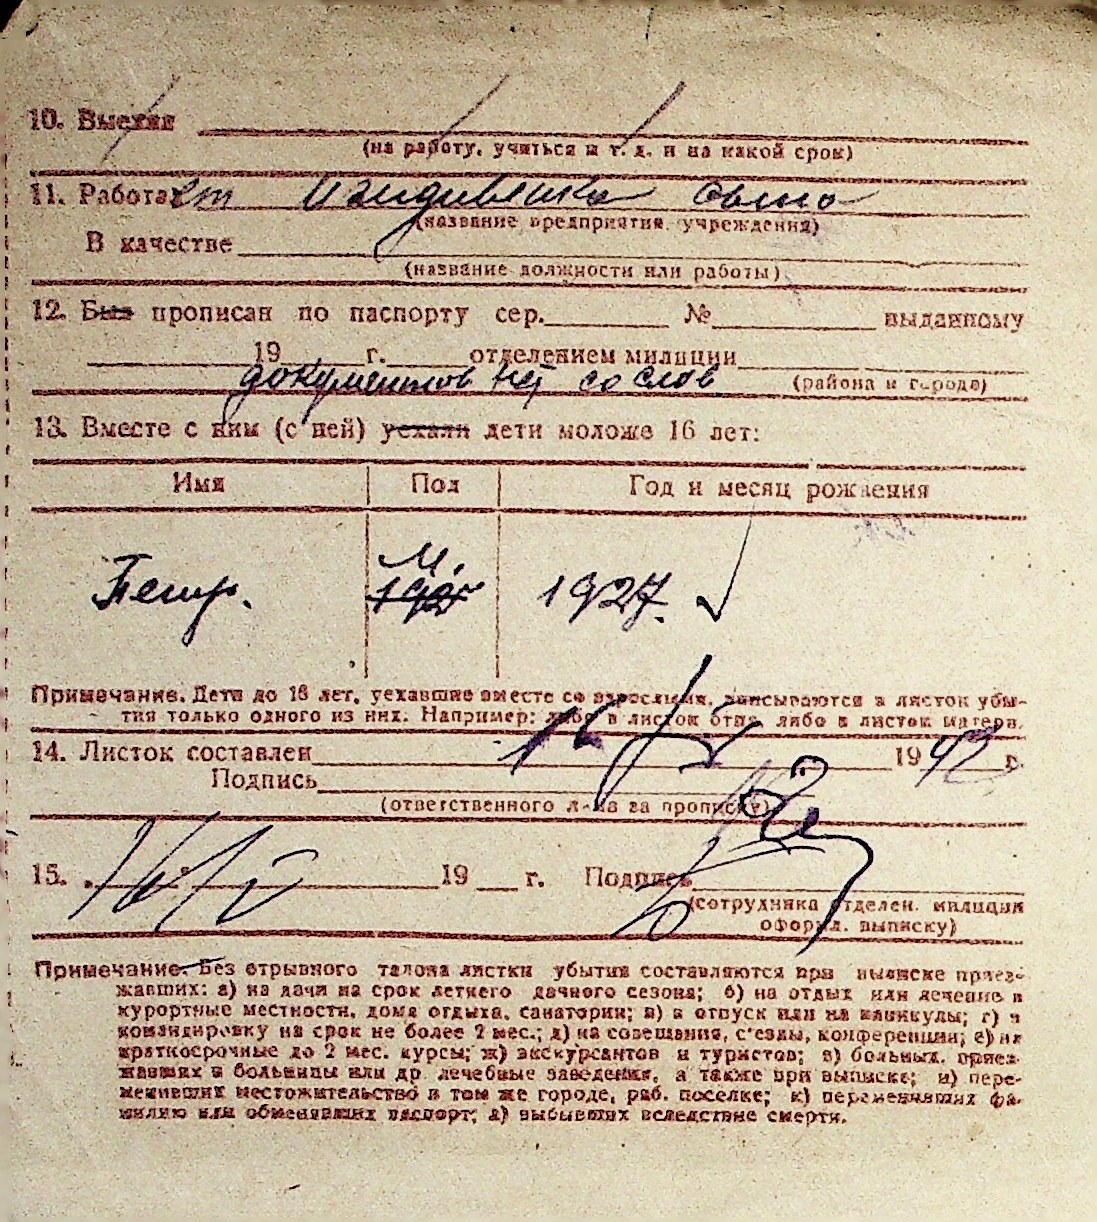 10. Выехал
(на работу, учиться и т. д. и на какой срок)
11. Работает Иждивенка сына
(название предприятия, учреждения)
В качестве
(название должности или работы)
12. Был прописан по паспорту сер. № выданному
19 г. отделением милиции
документов нет со слов (района и города)
13. Вместе с ним (с ней) уехали дети моложе 16 лет:
Имя Пол Год и месяц рождения
М.
Петр. 1927 1927.
Примечание. Дети до 16 лет, уехавшие вместе со взрослыми, вписываются в листок убы-
тия только одного из них. Например: либо в листок отца, либо в листок матери.
14. Листок составлен 16/V 1942 г.
Подпись
(ответственного л-ца за прописку)
15. 16/V 19 г. Подпись
(сотрудника отделен. милиции
оформл. выписку)
Примечание. Без отрывного талона листки убытия составляются при выписке приез-
жавших: а) на дачи на срок летнего дачного сезона; б) на отдых или лечение в
курортные местности, дома отдыха, санатории; в) в отпуск или на каникулы; г) в
командировку на срок не более 2 мес.; д) на совещания, с'езды, конференции; е) на
краткосрочные до 2 мес. курсы; ж) экскурсантов и туристов; з) больных, приез-
жавших в больницы или др. лечебные заведения, а также при выписке; и) пере-
менивших местожительство в том же городе, раб. поселке; к) переменивших фа-
милию или обменявших паспорт; л) выбывших вследствие смерти.